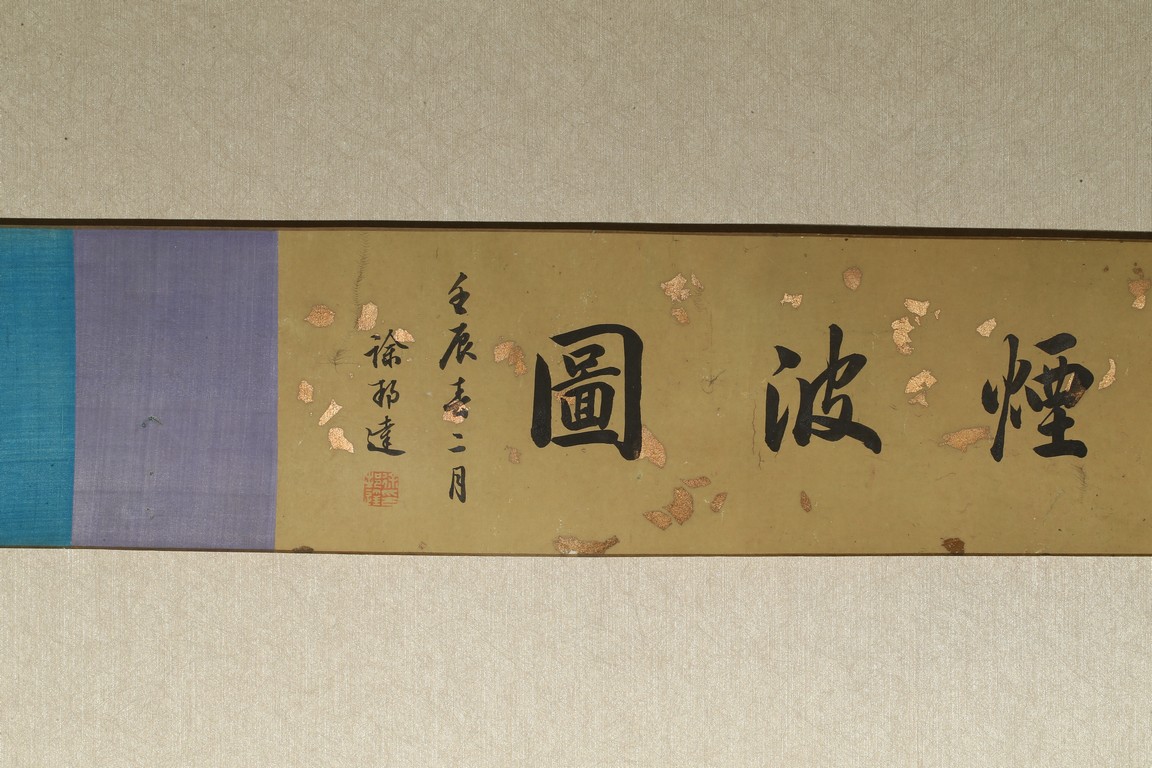 煙波圖
壬辰春二月
徐邦達